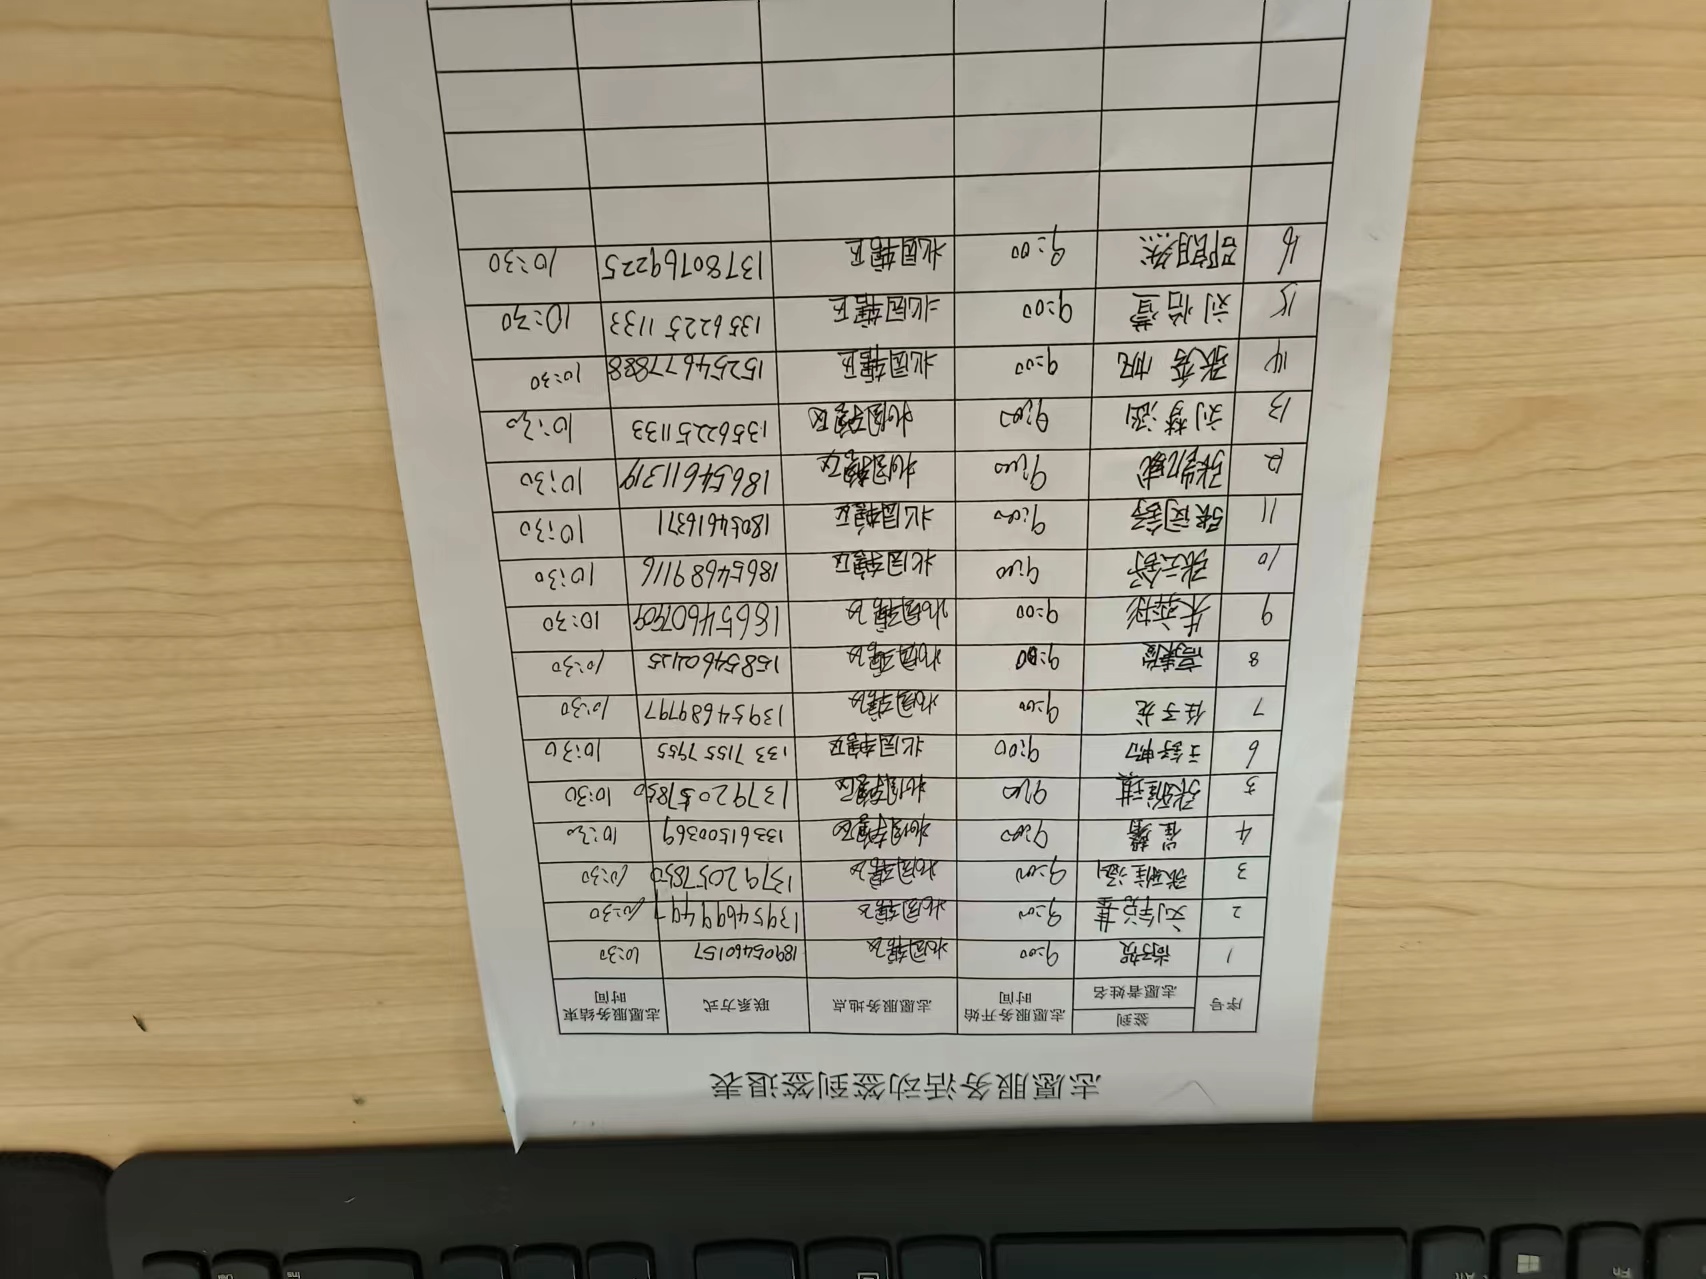 志愿服务活动签到签退表
序号 签到 志愿服务开始时间 志愿服务地点 联系方式 志愿服务结束时间
志愿者姓名
1 9:00 北园辖区 18905460157 10:30
2 9:00 北园辖区 10:30
3 张雅涵 9:00 北园辖区 13792057850 10:30
4 崔馨 9:00 北园辖区 13361500369 10:30
5 张雅琪 9:00 北园辖区 13792057850 10:30
6 9:00 北园辖区 133 7155 7955 10:30
7 任子龙 9:00 北园辖区 13954689797 10:30
8 9:00 北园辖区 15854602425 10:30
9 9:00 北园辖区 18654607909 10:30
10 张云舒 9:00 北园辖区 18654689116 10:30
11 9:00 北园辖区 18054616371 10:30
12 张凯威 9:00 北园辖区 18654611319 10:30
13 刘梦涵 9:00 北园辖区 13562251133 10:30
14 9:00 北园辖区 15254677888 10:30
15 刘怡萱 9:00 北园辖区 1356225 1133 10:30
16 邵明然 9:00 北园辖区 13780769225 10:30